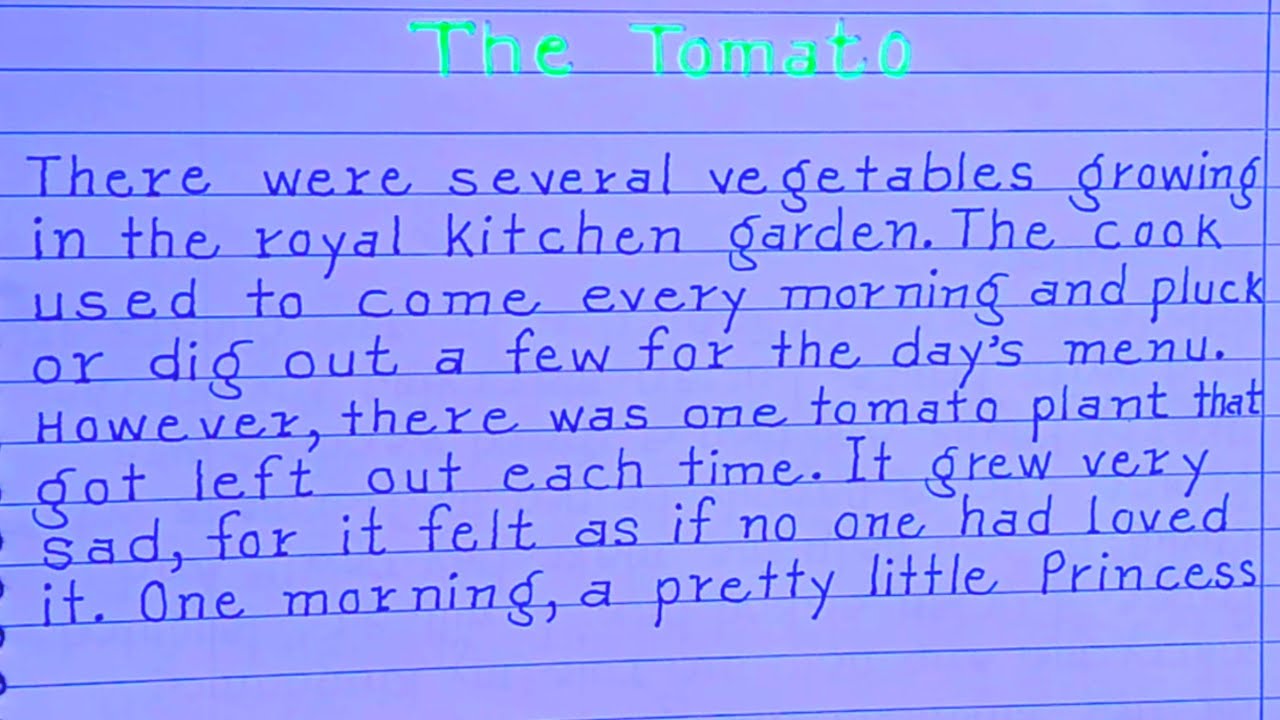 The Tomato
There were several vegetables growing
in the royal kitchen garden. The cook
used to come every morning and pluck
or dig out a few for the day's menu.
However, there was one tomato plant that
got left out each time. It grew very
sad, for it felt as if no one had loved
it. One morning, a pretty little Princess